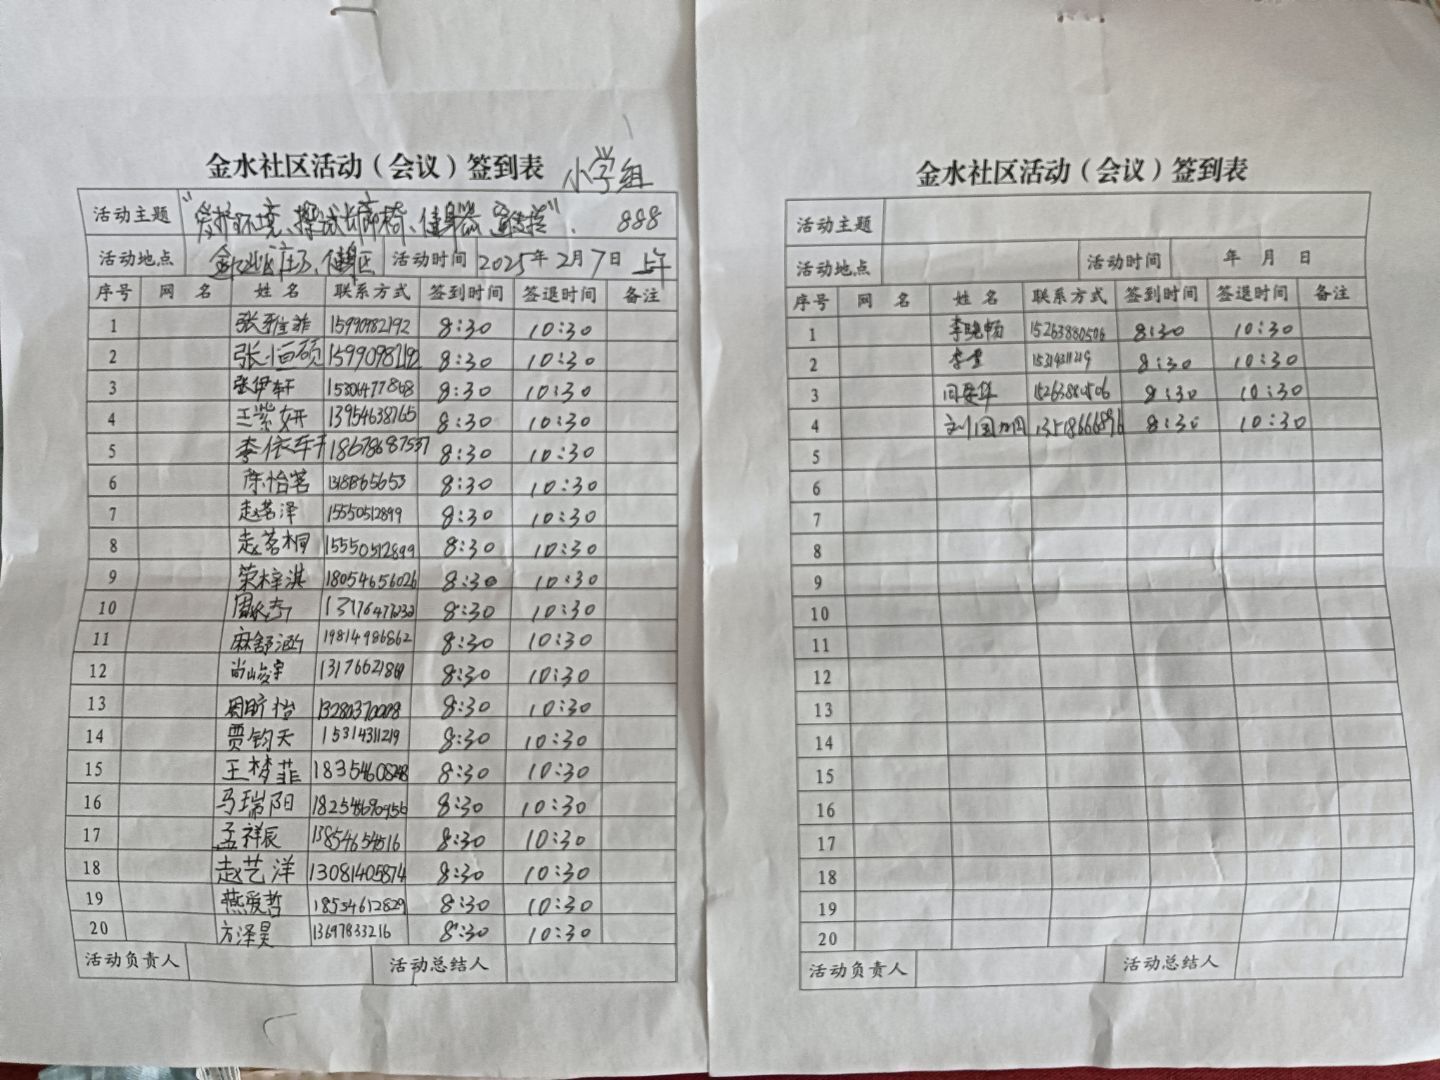 金水社区活动（会议）签到表 小学组
活动主题 "爱护环境、擦拭长廊椅、健身器 宣传栏". 888
活动地点 活动时间 2025年2月7日 上午
序号 网 名 姓 名 联系方式 签到时间 签退时间 备注
1 张雅菲 15990982192 8:30 10:30
2 张恒硕 15990982192 8:30 10:30
3 张伊轩 15306477868 8:30 10:30
4 王紫妍 13954638765 8:30 10:30
5 李依轩 18678687537 8:30 10:30
6 陈怡茗 8:30 10:30
7 赵茗泽 15550512899 8:30 10:30
8 赵茗桐 15550512899 8:30 10:30
9 荣梓淇 18054656026 8:30 10:30
10 8:30 10:30
11 麻舒涵 19814986862 8:30 10:30
12 尚峻宇 8:30 10:30
13 周昕怡 13280370008 8:30 10:30
14 贾钧天 15314311219 8:30 10:30
15 王梦菲 8:30 10:30
16 马瑞阳 18254690956 8:30 10:30
17 孟祥辰 13854654516 8:30 10:30
18 赵艺洋 13081405874 8:30 10:30
19 燕爱哲 18554612829 8:30 10:30
20 方泽昊 13697833216 8:30 10:30
活动负责人 活动总结人
金水社区活动（会议）签到表
活动主题
活动地点 活动时间 年 月 日
序号 网 名 姓 名 联系方式 签到时间 签退时间 备注
1 李晓畅 15263880506 8:30 10:30
2 15314311219 8:30 10:30
3 15263880506 8:30 10:30
4 刘国 13518666896 8:30 10:30
5
6
7
8
9
10
11
12
13
14
15
16
17
18
19
20
活动负责人 活动总结人